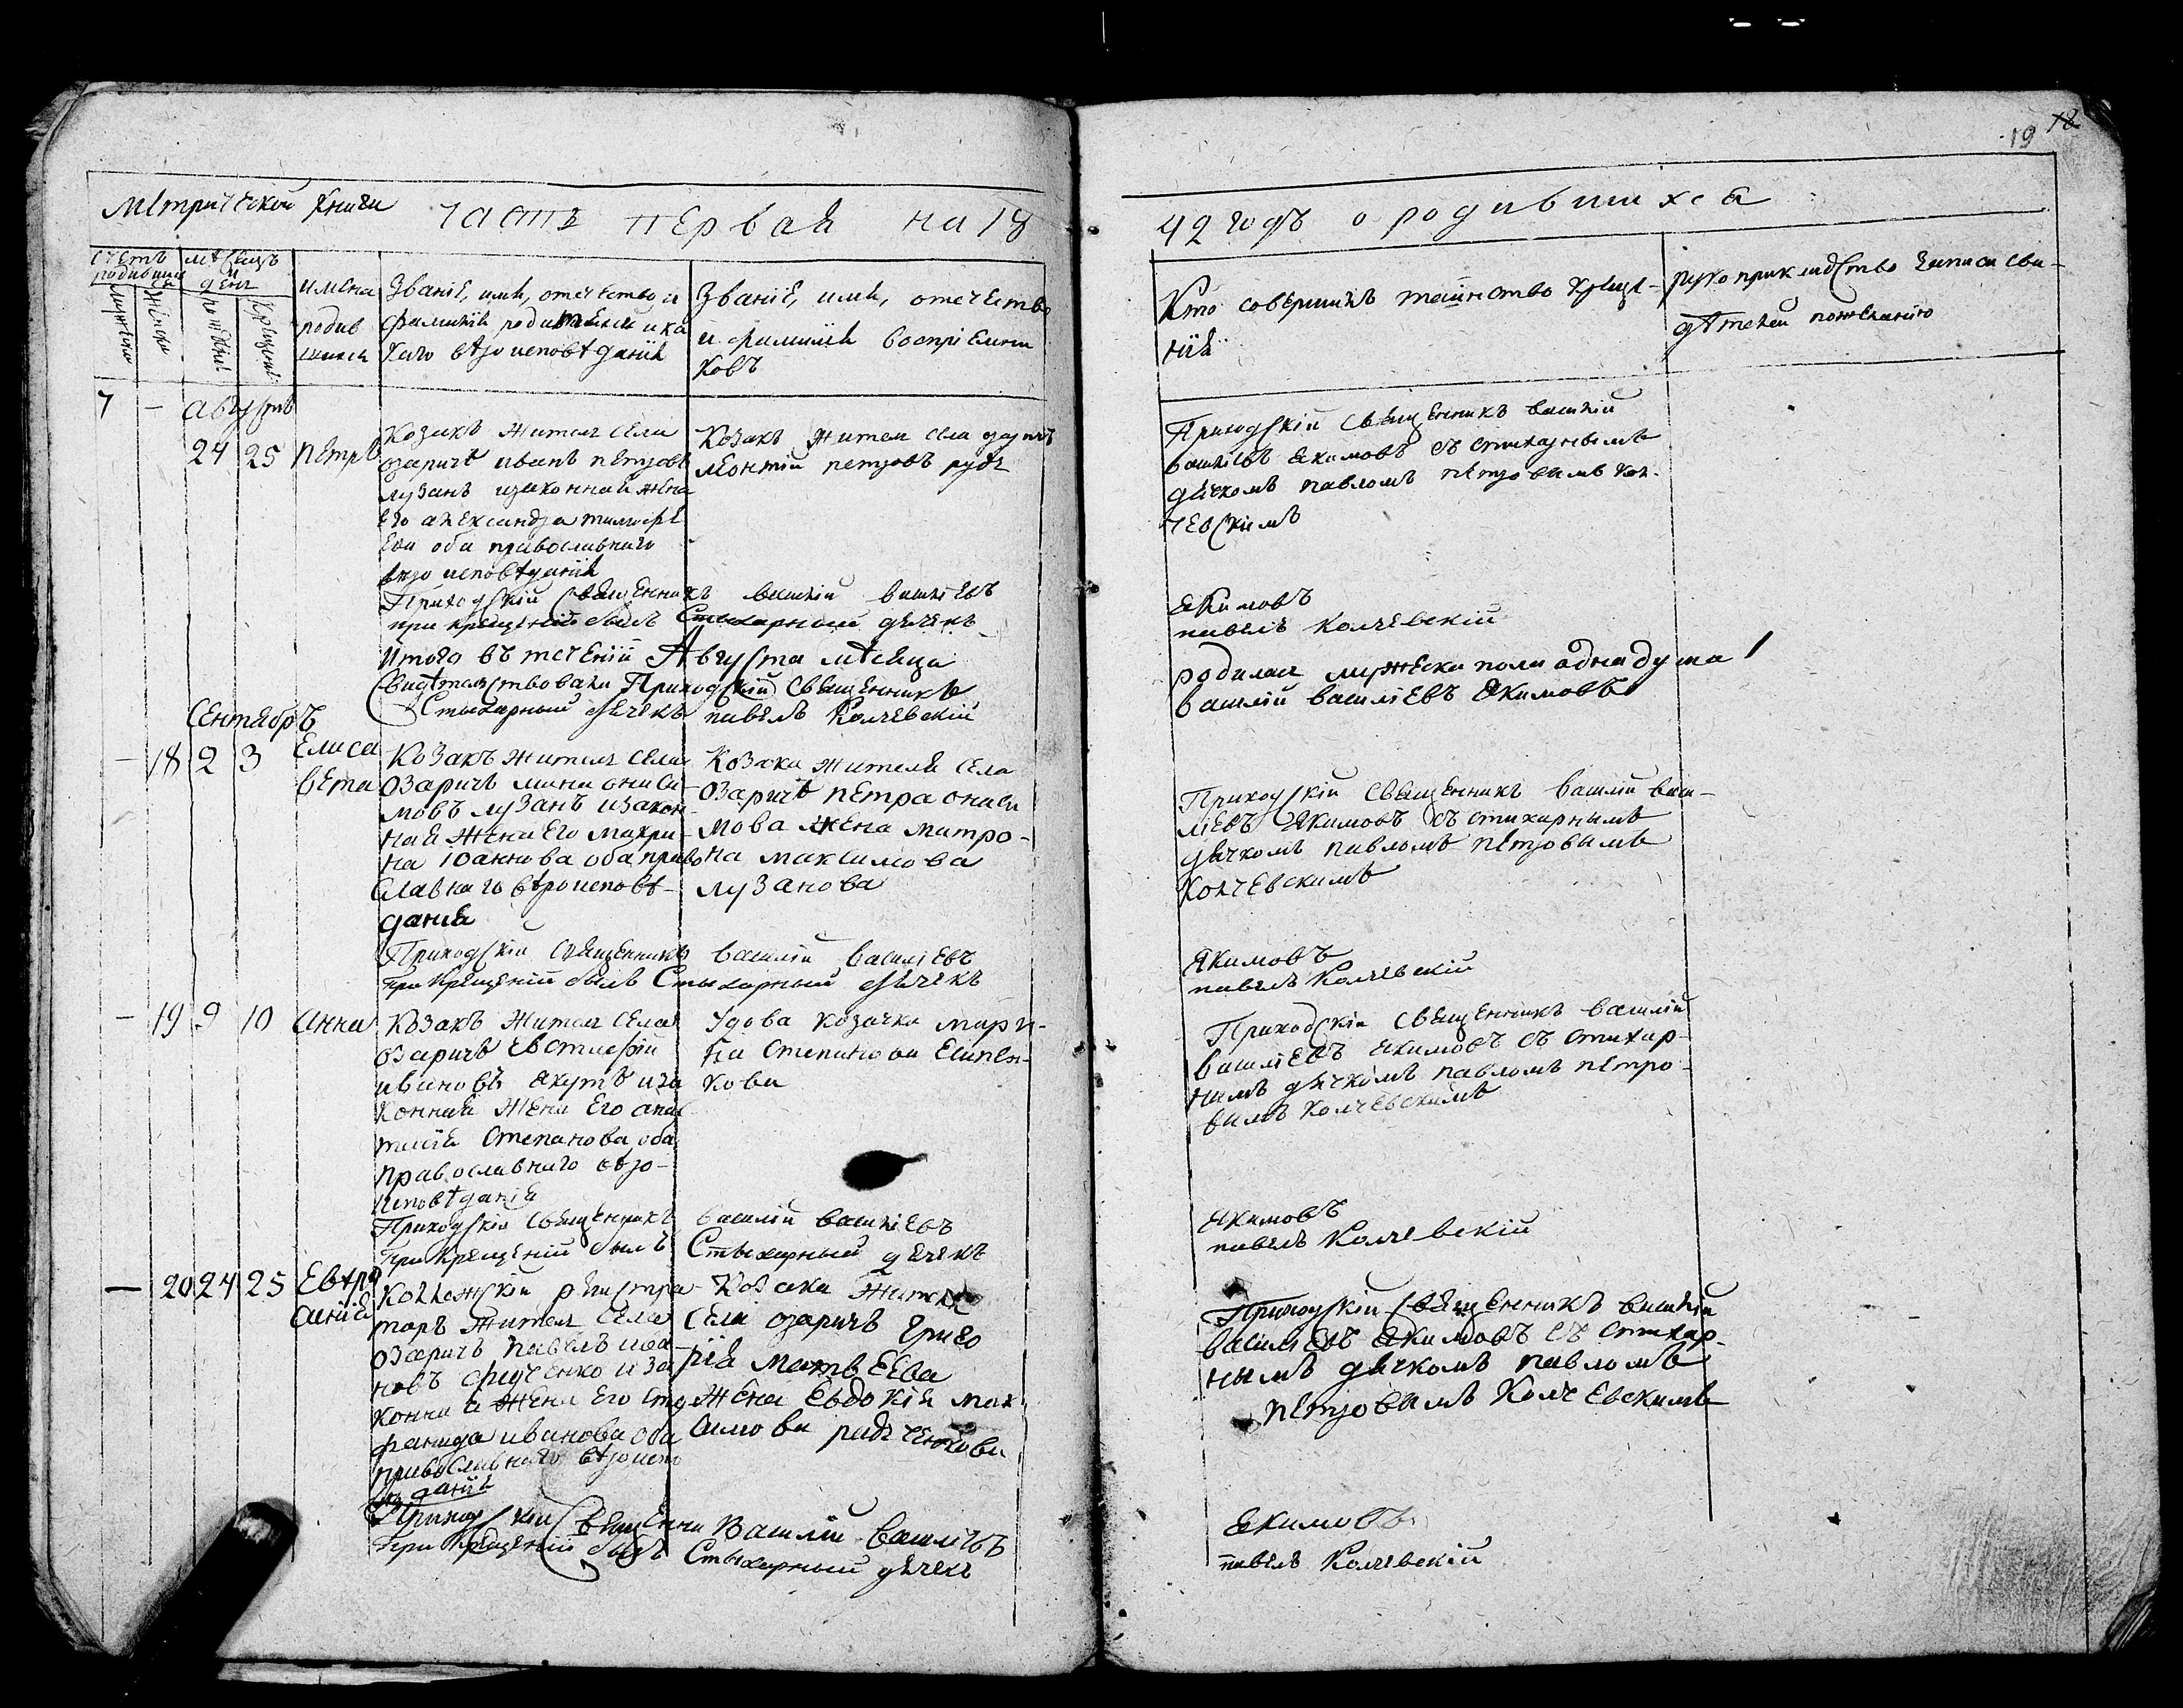 19 18
Метрической Книги часть первая на 18
42 годъ о родившихся
Счетъ родивши ся
мѣсяцъ и день
Мужеска
Женска
рождені
Крещені
имена
родив
шихся
Званіе, имя, отечество и
фамилія родителей и ка
каго вѣроисповѣданія
Званіе, имя, отечество
и фамилія воспріемни
ковъ
Кто совершилъ таинство Креще-
нія
рукоприкладство записи сви-
дѣтелей пожеланію
7 - Августъ
24 25 Петръ
Козакъ житель села
озаричъ иванъ петровъ
лузанъ изаконная жена
Его александра тимофе
Ева оба православнаго
вѣроисповѣданія
Козакъ житель села
леонтій петровъ
Приходскій Священникъ василій
василіевъ якимовъ съ стихарнымъ
дячкомъ павломъ петровымъ Кол-
чевскимъ
Приходскій Священникъ василій василіевъ
якимовъ
при крещеніи былъ Стихарный дячекъ
павелъ колчевскій
Итого въ теченіи Августа мѣсяца
родилая мужеска пола одна душа 1
Свидѣтельствовали Приходскій Священникъ
василій василіевъ якимовъ
Стихарный дячекъ павелъ Колчевскій
Сентябръ
- 18 2 3 Елиса
вета
Козакъ житель села
озаричъ мина ониси
мовъ лузанъ изакон
ная жена Его макри-
на іоаннова оба право
славнаго вѣроисповѣ-
данія
Козака жителя села
озаричъ петра ониси
мова жена матро-
на максимова
лузанова
Приходскій Священникъ василій васи-
ліевъ якимовъ съ стихарнымъ
дячкомъ павломъ петровымъ
Колчевскимъ
Приходскій Священникъ василій василіевъ
якимовъ
при Крещеніи былъ Стихарный дячекъ
павелъ Колчевскій
- 19 9 10 Анна
Козакъ житель села
озаричъ Евстафій
ивановъ якутъ иза
конная жена Его анас
тасія Степанова, оба
православнаго вѣро-
исповѣданія
Удова козачка мари-
на Степанова
кова
Приходскій Священникъ василій
василіевъ якимовъ съ стихар-
нимъ дячкомъ павломъ петро-
вимъ Колчевскимъ
Приходскій Священникъ василій василіевъ
якимовъ
при Крещеніи былъ Стихарный дячекъ
павелъ Колчевскій
- 20 24 25 Евѣра
Колежскій регистра
торъ житель села
озаричъ павелъ ива-
новъ иза
конна я жена Его
ивановна оба
православнаго вѣроиспо
вѣданія
Козака жителя
села озаричъ Григо
рія матвѣева
жена Евдокія мак
симова
Приходскій Священникъ василій
василіевъ якимовъ съ стихар-
нымъ дячкомъ павломъ
петровымъ Колчевскимъ
Приходскій Священни Василій василіевъ
якимовъ
при крещеніи былъ Стихарный дячекъ
павелъ Колчевскій